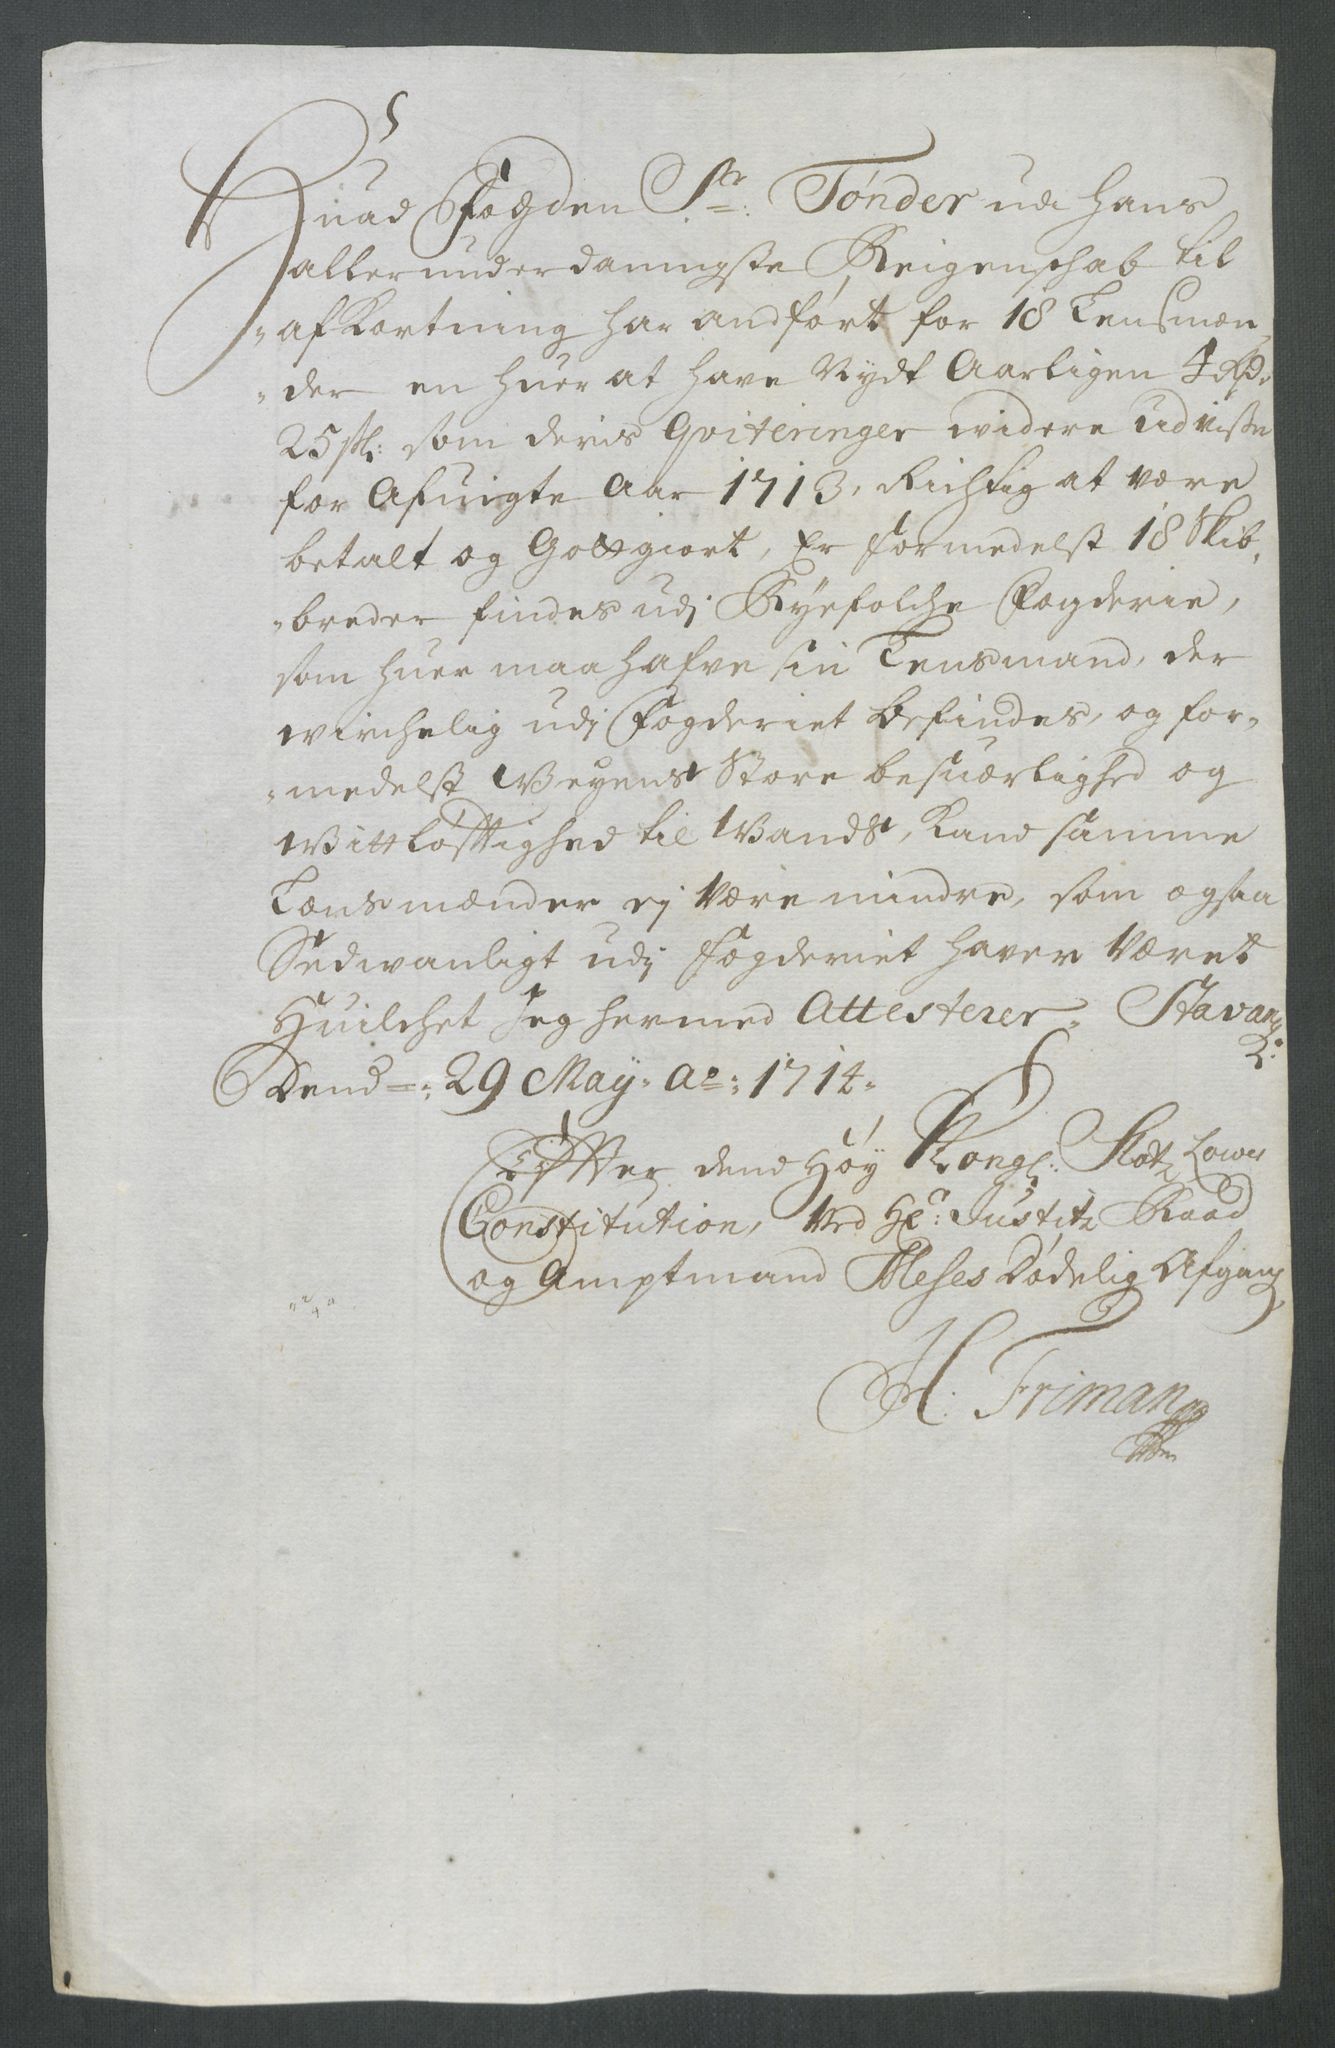 Huad Fogden Sr: Tønder udi hans
allerunderdanigste Reigenschab til
afkortning har andført for 18 Lensmæn
der en huer at have Nydt Aarligen 4 Rdr.
25 sk: som deris Qviteringer widere udviser
for Afuigte Aar 1713, Richtig at være
betalt og Gottgiort, Er formedelst 18 Skib,
breder findes udj Ryefolche Fogderie,
som huer maa hafve sin Lensmand, der
wirchelig udj Fogderiet befindes, og for-
medelst Weyens Store besuærlighed og
Wittløfftighed til Wands, kand samme
Lænsmænder ej være mindre, som ogsaa
Sedwanligt udj Fogderiet haver Været
Huilchet Jeg hermed Attesterer, Stavang
Dend 29 May. Ao: 1714.
Effter dend Høy Kongl: Slotz Lowens
Constitution, Ved Hr: Justitz Raad
og Amptmand Dødelig Afgang
H: Friman